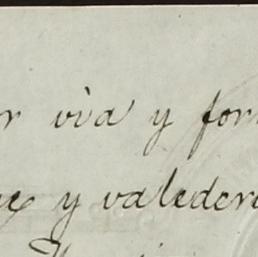 r via y for
y valeder